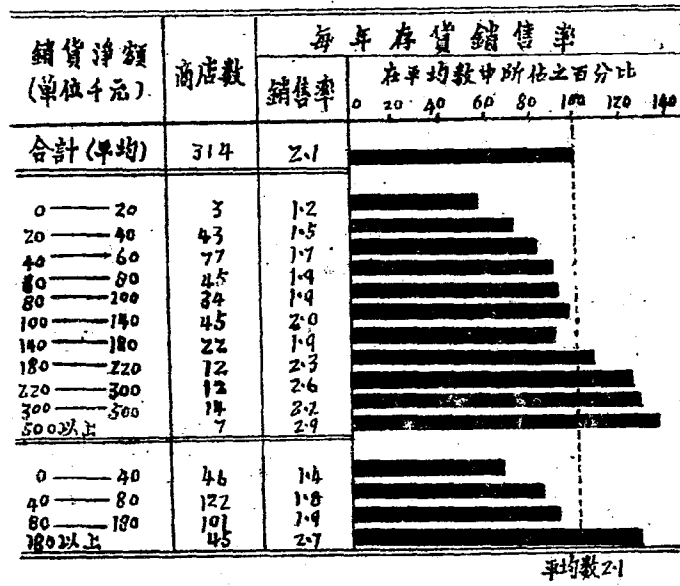 銷貨淨額
(單位千元)
商店數
每年存貨銷售率
銷售率
在平均數中所佔之百分比
0 20 40 60 80 100 120 140
合計(平均) 314 2.1
0——20 3 1.2
20——40 43 1.5
40——60 77 1.7
60——80 45 1.9
80——100 34 1.9
100——140 45 2.0
140——180 22 1.9
180——220 12 2.3
220——300 12 2.6
300——500 14
500以上 7 2.9
0——40 46 1.4
40——80 122 1.8
80——180 101 1.9
180以上 45 2.7
平均數2.1